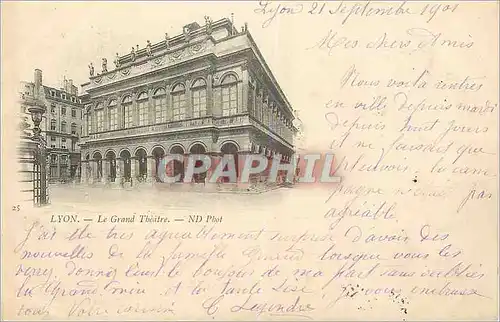 Lyon 21 Septembre 1901
Mes chers Amis
Nous voilà rentrés
en ville depuis mardi
depuis huit jours
il ne faisait que
pleuvoir, la cam
pagne n'était pas
agréable.
CPARAMA
25
LYON. — Le Grand Théâtre. — ND Phot
J'ai été très agréablement surprise d'avoir des
nouvelles de la famille lorsque vous les
verrez donnez leur le bonjour de ma part sans oublier
la Grand' mère et la tante Lise. Je vous embrasse
tous Votre cousin C. Legendre